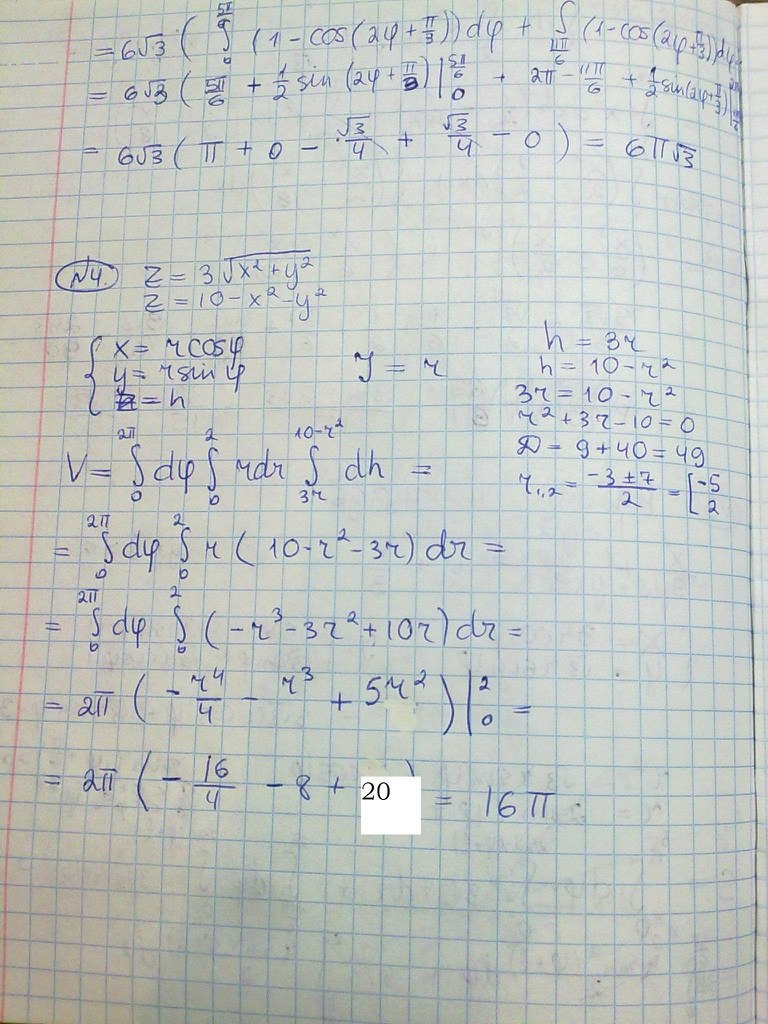 = 6√3 ( ∫ (1 - cos(2φ + π/3)) dφ + ∫ (1 - cos(2φ + π/3)) dφ
= 6√3 ( 5π/6 + 1/2 sin (2φ + π/3) |₀^(5π/6) + 2π - 11π/6 + 1/2 sin(2φ + π/3) |
= 6√3 ( π + 0 - √3/4 + √3/4 - 0 ) = 6π√3
№4. z = 3√(x² + y²)
z = 10 - x² - y²
{ x = r cosφ
y = r sinφ
z = h
J = r
h = 3r
h = 10 - r²
3r = 10 - r²
r² + 3r - 10 = 0
D = 9 + 40 = 49
r₁,₂ = (-3 ± 7)/2 = [ -5
2
V = ∫₀^(2π) dφ ∫₀² r dr ∫_(3r)^(10-r²) dh =
= ∫₀^(2π) dφ ∫₀² r ( 10 - r² - 3r) dr =
= ∫₀^(2π) dφ ∫₀² ( -r³ - 3r² + 10r) dr =
= 2π ( - r⁴/4 - r³ + 5r² ) |₀² =
= 2π ( - 16/4 - 8 + 20 ) = 16π